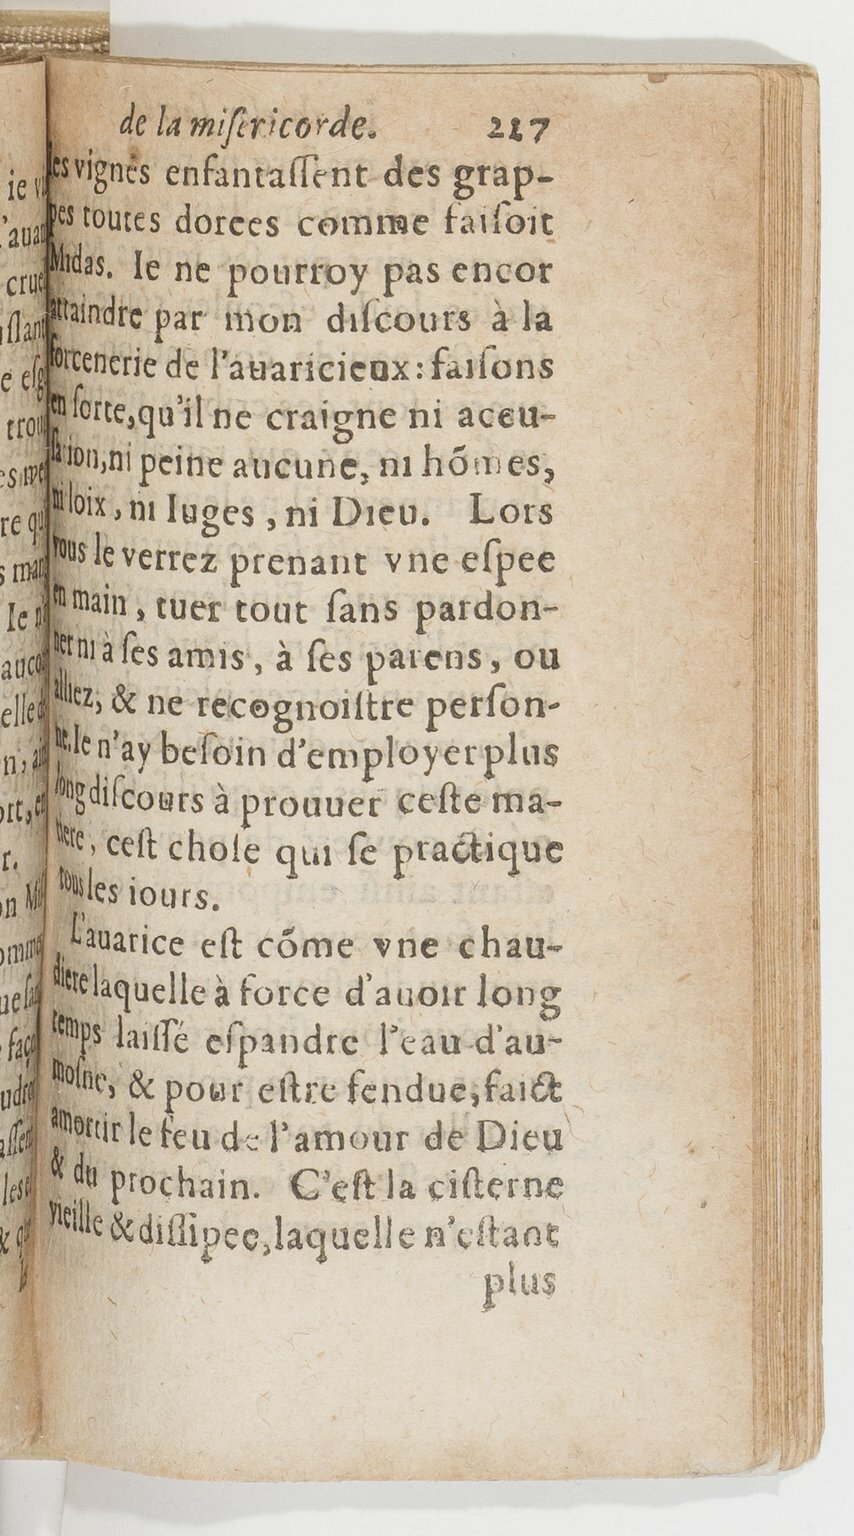 de la miſericorde. 217
les vignes enfantaſſent des grap-
pes toutes dorees comme faiſoit
Midas. Ie ne pourroy pas encor
attaindre par mon diſcours à la
forcenerie de l'auaricieux: faiſons
en ſorte, qu'il ne craigne ni accu-
ſation, ni peine aucune, ni hõmes,
ni loix, ni Iuges, ni Dieu. Lors
vous le verrez prenant vne eſpee
en main, tuer tout ſans pardon-
ner ni à ſes amis, à ſes parens, ou
alliez, & ne recognoiſtre perſon-
ne. Ie n'ay beſoin d'employer plus
long diſcours à prouuer ceſte ma-
tiere, ceſt choſe qui ſe practique
tous les iours.
L'auarice eſt cõme vne chau-
diere laquelle à force d'auoir long
temps laiſſé eſpandre l'eau d'au-
moſne, & pour eſtre fendue, faict
amortir le feu de l'amour de Dieu
& du prochain. C'eſt la ciſterne
vieille & diſſipee, laquelle n'eſtant
plus